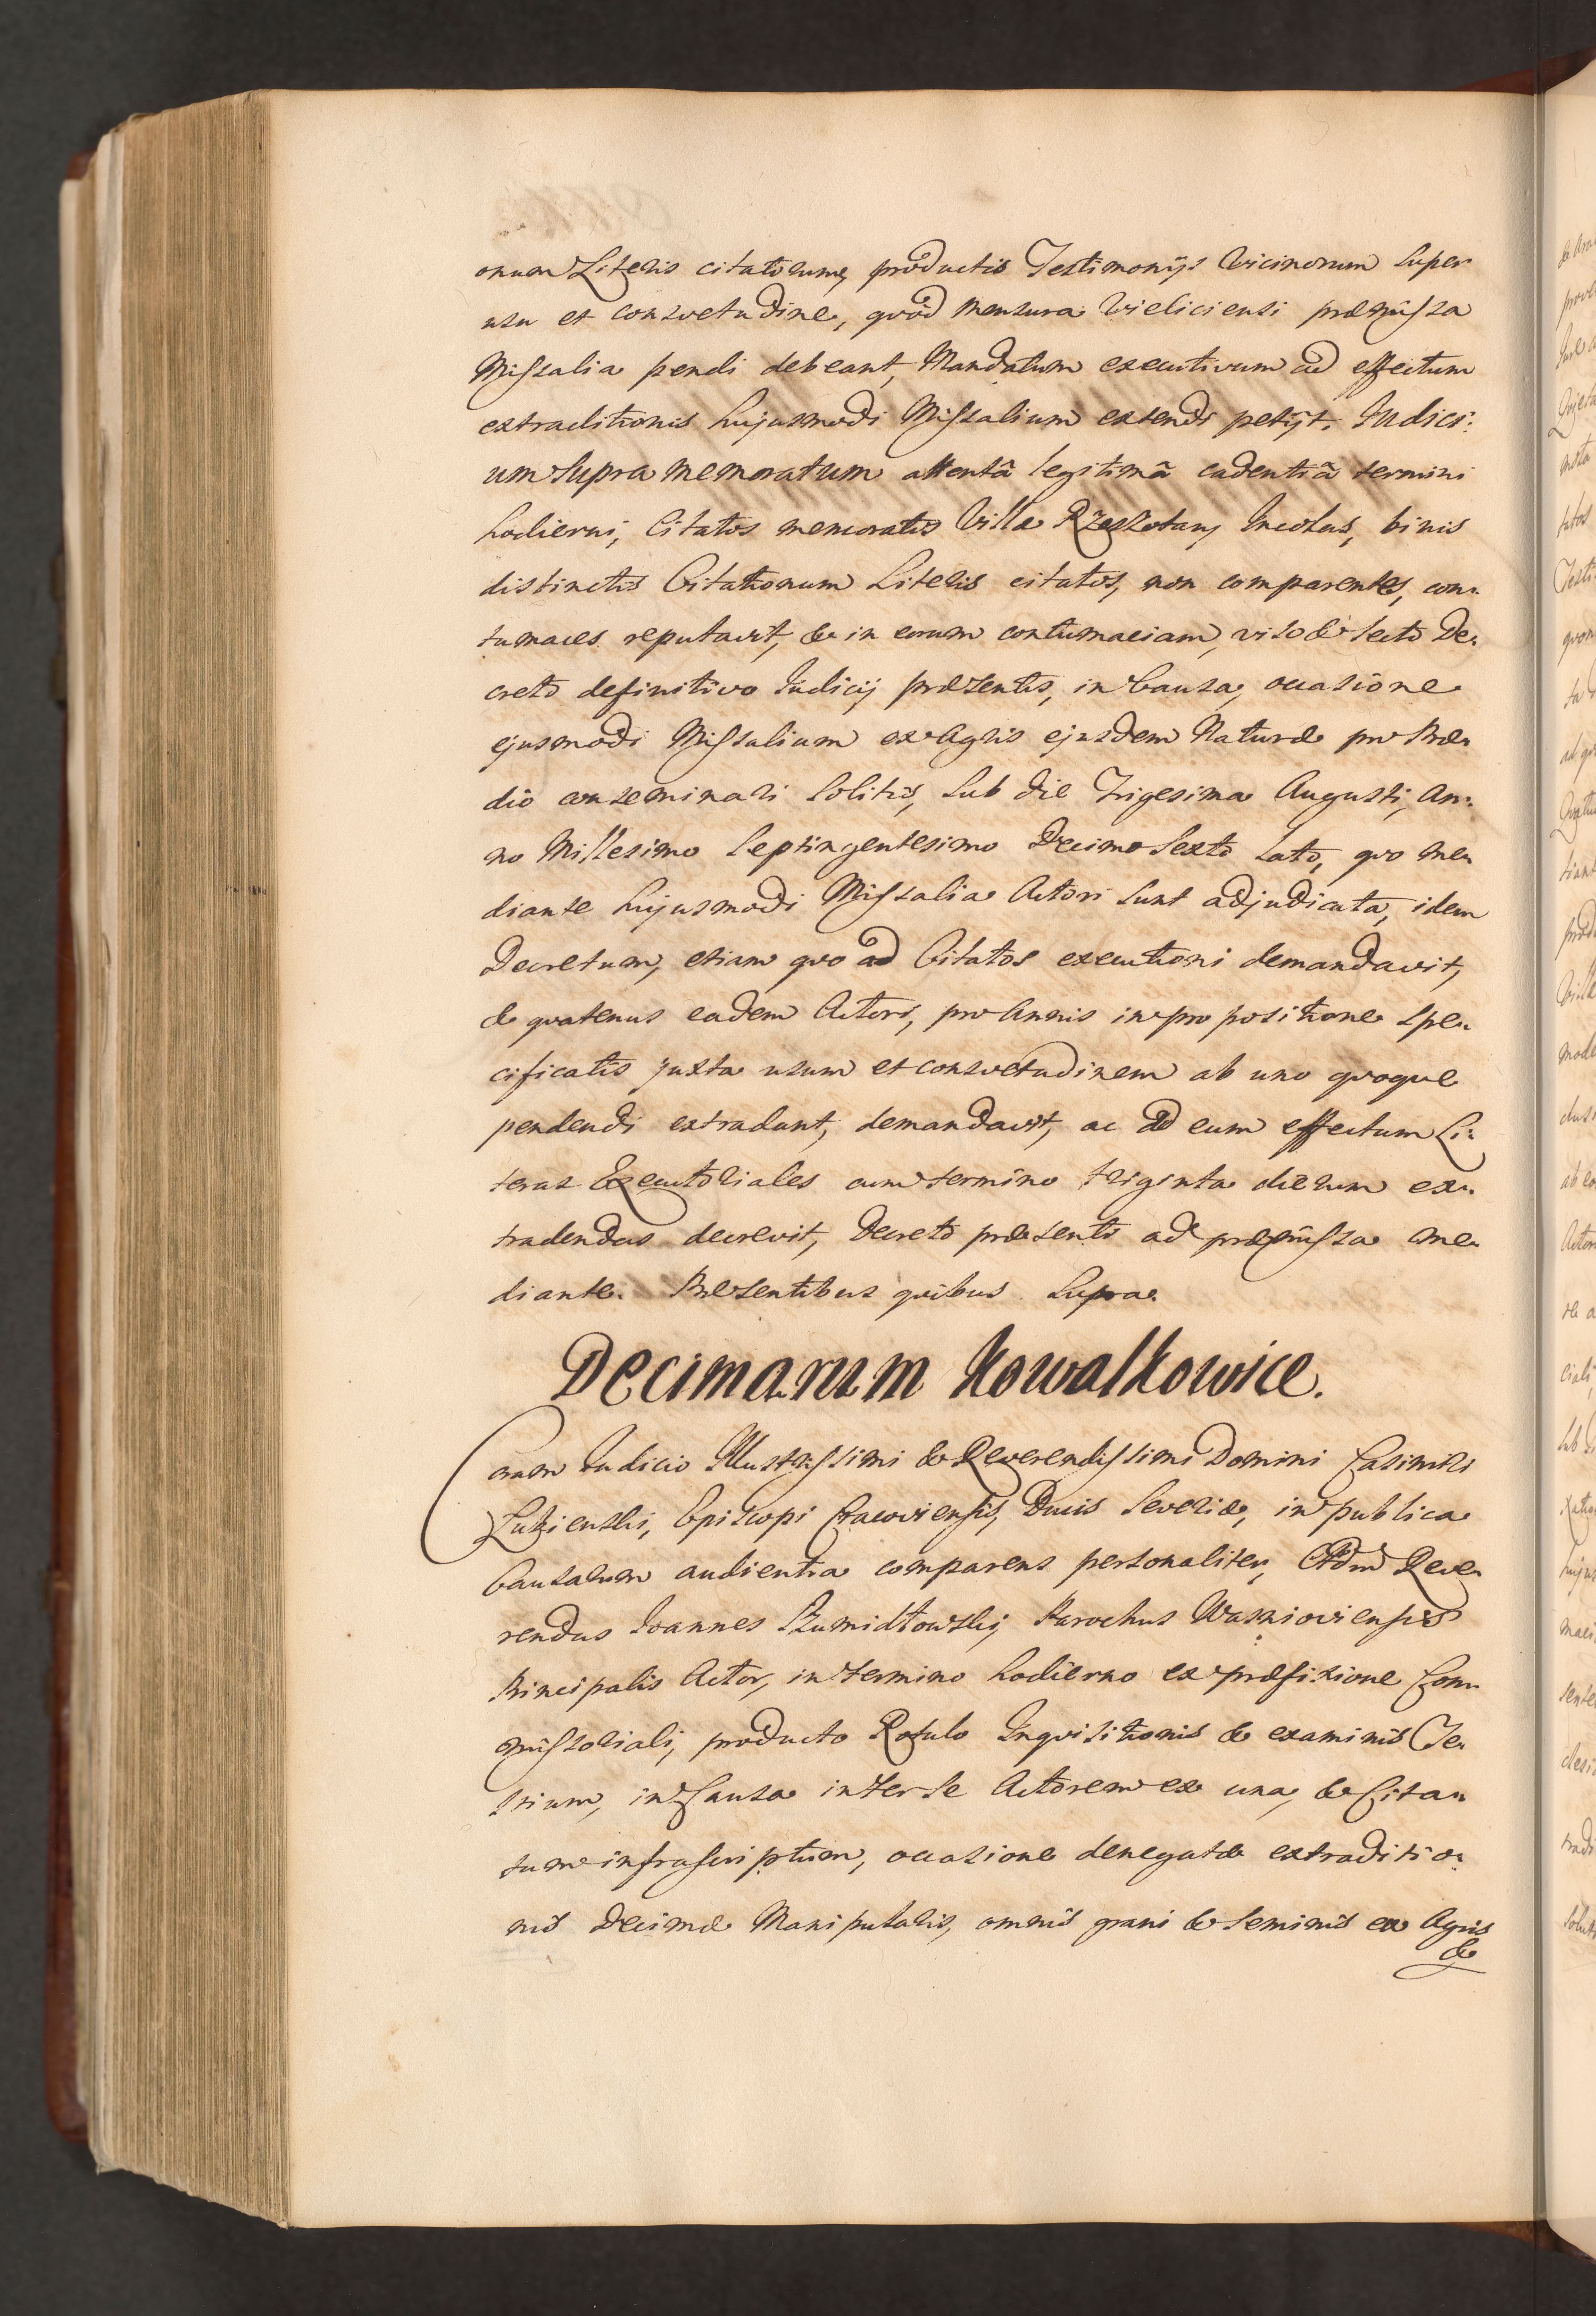 onum Literis citatorum, productis Testimonijs Vicinorum super
usu et consvetudine, qvod mensura Vieliciensi præmissa
Missalia pendi debeant, Mandatum executivum ad effectum
extraditionis hujusmodi Missalium extendi petijt. Judici:
um supra memoratum attentâ legitimâ cadentiâ termini
hodierni, Citatos memoratis Villæ Rzeszotary Incolas, binis
distinctis Citationum Literis citatos, non comparentes, con:
tumaces reputavit, & in eorum contumaciam, viso & lecto De:
creto definitivo Judicij præsentis, in Causa, occasione
ejusmodi Missalium ex Agris ejusdem Naturæ pro Præ:
dio conseminari solitis, sub die Trigesima Augusti, An:
no Millesimo Septingentesimo Decimo Sexto lato, qvo me:
diante hujusmodi Missalia Actori sunt adjudicata, idem
Decretum, etiam qvo ad Citatos executioni demandavit,
& qvatenus eadem Actori, pro Annis in propositione spe:
cificatis juxta usum et consvetudinem ab uno qvoqve
pendendi extradant, demandavit, ac ad eum effectum Li:
teras Executoriales cum termino triginta dierum ex:
tradendas decrevit, Decreto præsenti ad præmissa me:
diante. Præsentibus qvibus supra.
Decimarum Kowalkowice.
Coram Judicio Illustrissimi & Reverendissimi Domini Casimiri
Łubienski, Episcopi Cracoviensis, Ducis Severiæ, in publica
Causarum audientia comparens personaliter, Admd Reve:
rendus Joannes Szumidłowski, Parochus Wasnioviensis
Principalis Actor, in termino hodierno ex præfixione Com:
missoriali, producto Rotulo Inqvisitionis & examinis Te:
stium, in Causa inter se Actorem ex una, & Cita:
tum infrascriptum, occasione denegatæ extraditio:
nis Decimæ Manipularis, omnis grani & seminis ex Agris
&